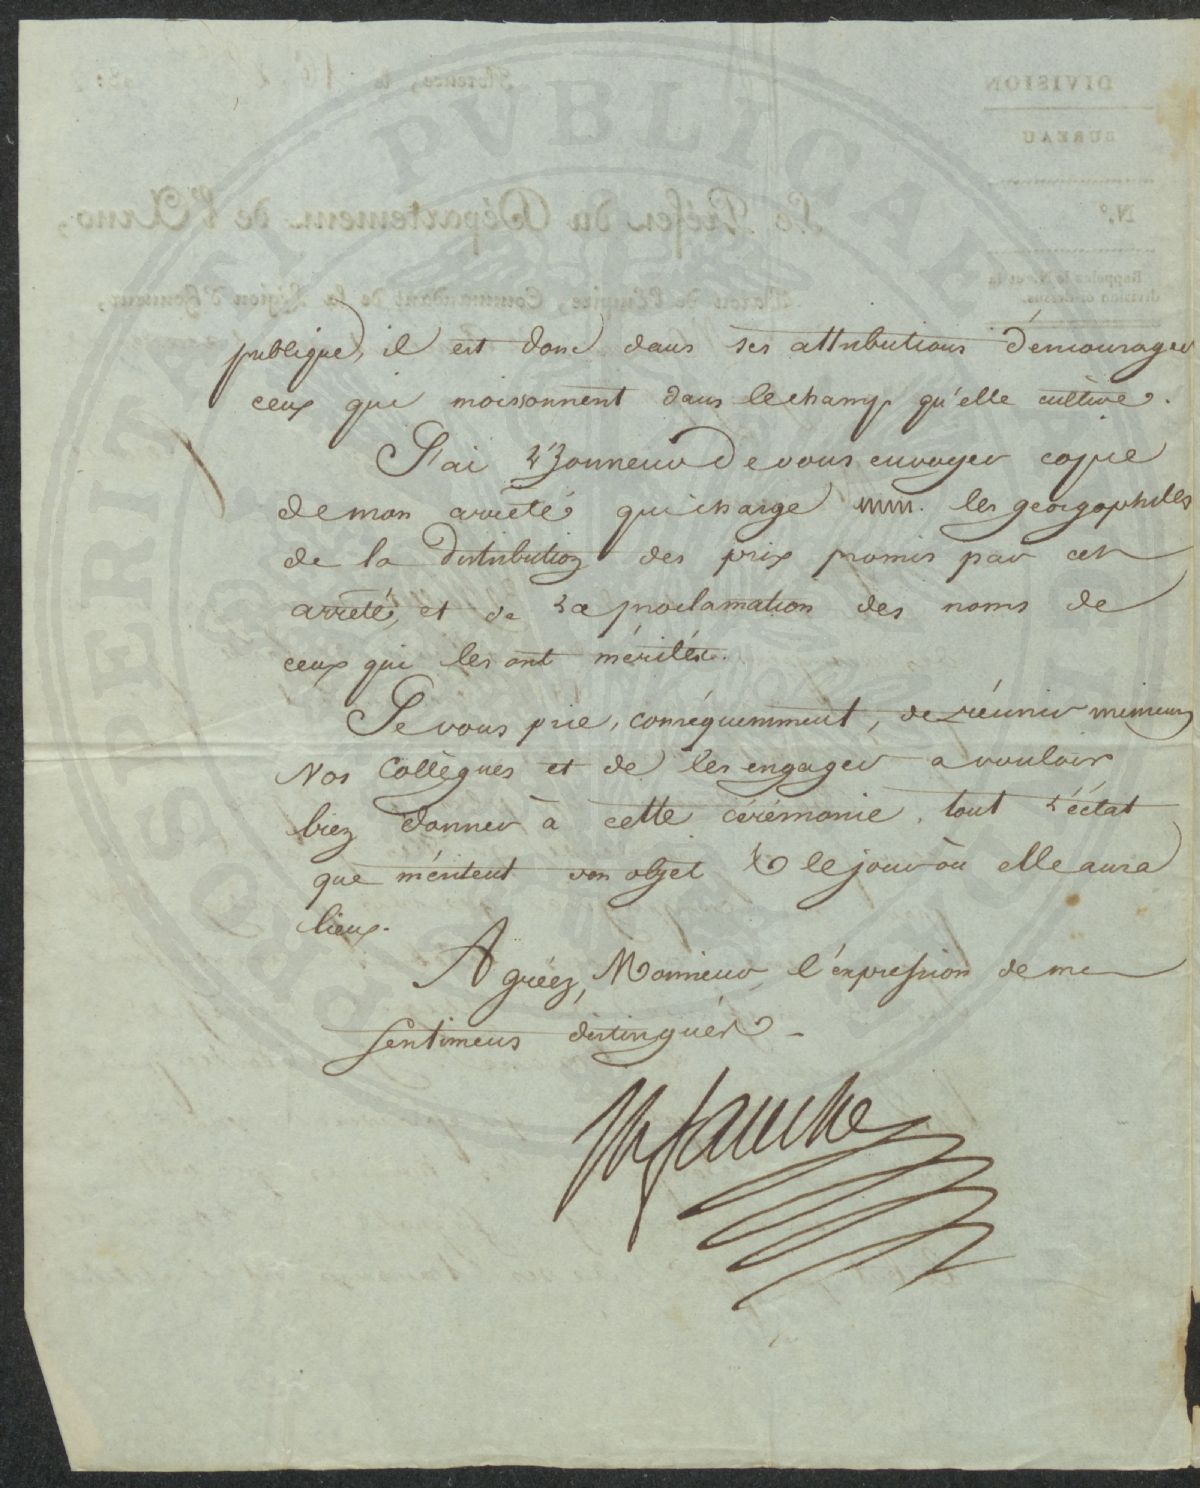 publique, il est donc dans ses attributions d'encourager
ceux qui moissonnent dans le champ qu'elle cultive.
J'ai l'honneur de vous envoyer copie
de mon arrêté qui charge mm. les géorgophiles
de la distribution des prix promis par cet
arrêté, et de la proclamation des noms de
ceux qui les ont mérités.
Je vous prie, conséquemment, de réunir messieurs
Vos Collègues et de les engager a vouloir
bien donner à cette cérémonie, tout l'éclat
que méritent son objet & le jour où elle aura
lieux.
Agréez, Monsieur, l'expression de mes
sentimens distingués
Fauchet